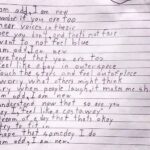 am odd, I am new
wonder if you are too
hear voices in the air
see you don't, and that's not fair
want to not feel blue
am odd, I am new
pretend that you are too
feel like a boy in outer space
touch the stars and feel out of place
worry what others might think
cry when people laugh, it makes me shrink
am odd, I am new
understand now that so are you
say I, "feel like a castaway"
dream of a day that's okay
try to fit in
hope that someday I do
am odd, I am new.